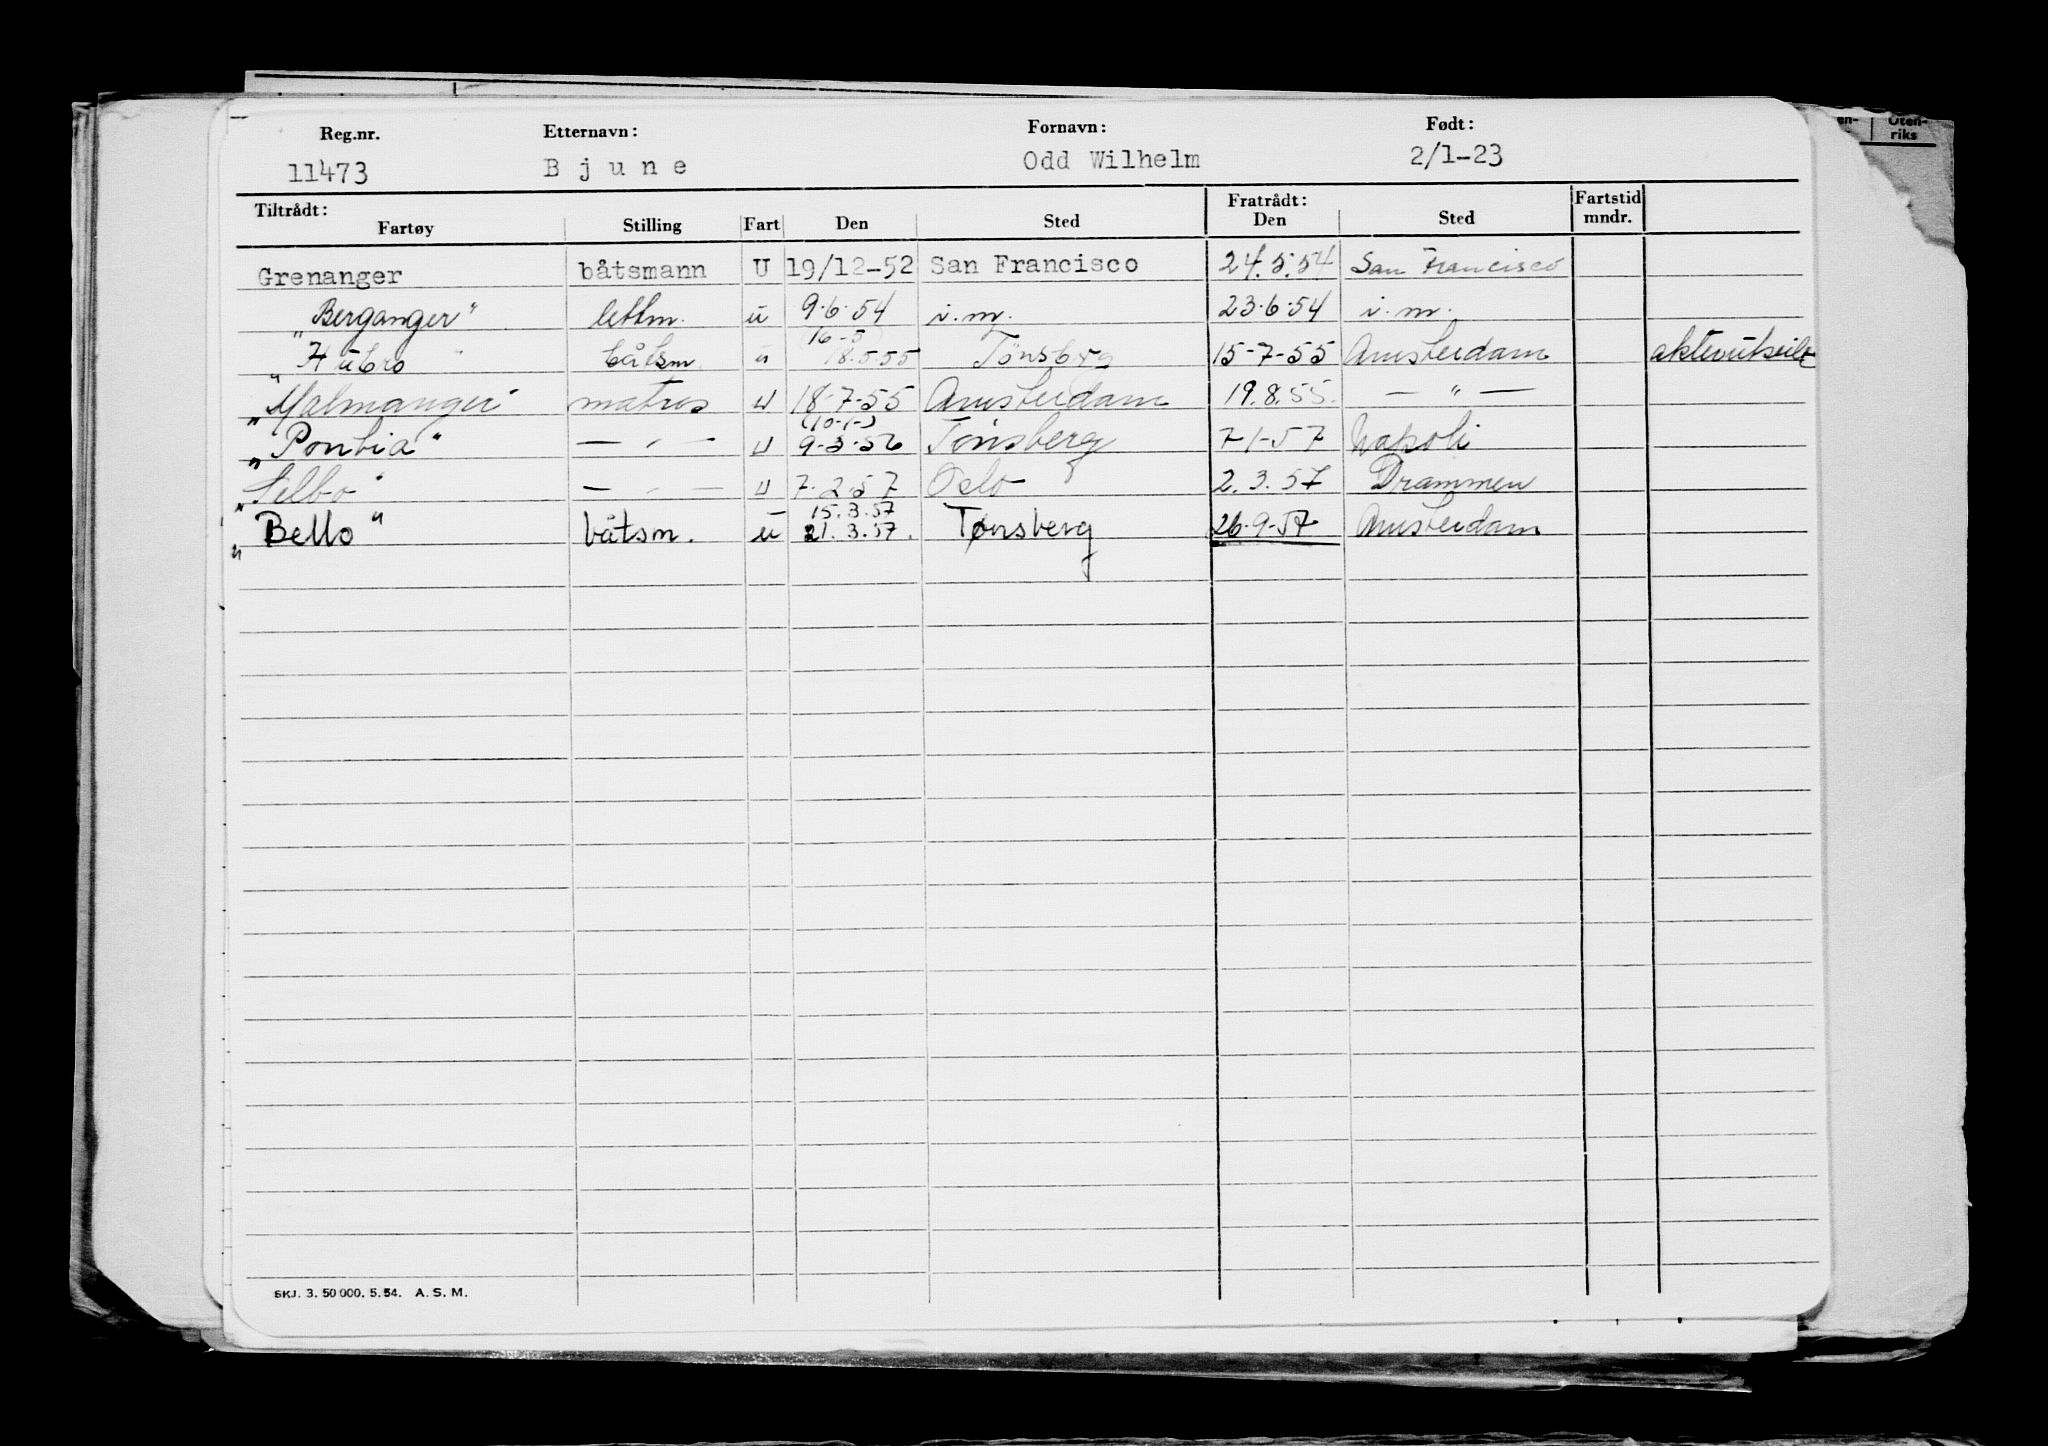 Uten-
riks
Reg.nr. Etternavn: Fornavn: Født:
11473 Bjune Odd Wilhelm 2/1-23
Tiltrådt: Fratrådt: Fartstid
Fartøy Stilling Fart Den Sted Den Sted mndr.
Grenanger båtsmann U 19/12-52 San Francisco 24.5.54 San Francisco
"Berganger" lettm. u 9.6.54 i.m. 23.6.54 i.m.
16-5
"Hubro" båtsm u 18.5.55 Tønsberg 15-7-55 Amsterdam
"Malmanger matros u 18-7-55 Amsterdam 19.8.55. — " —
(10-1-)
"Pontia" — " — u 9-3-56 Tønsberg 7-1-57 Napoli
"Selbo" — " — u 7.2.57 Oslo 2.3.57 Drammen
15.3.57
"Bello" båtsm. u 21.3.57. Tønsberg 26-9-57 Amsterdam
SKJ. 3. 50 000. 5. 54. A. S. M.